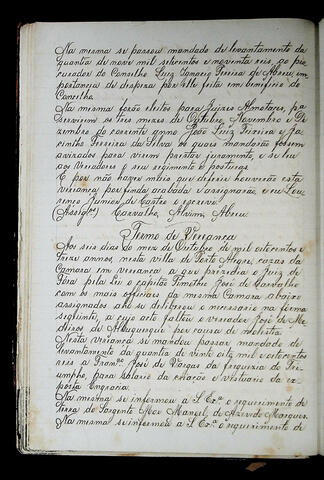 Na mesma se passou mandado de levantamento da
quantia de nove mil setecentos e noventa reis, ao pro
curador do Conselho Luiz Ignacio Pereira de Abreu, im
portancia de despeza por elle feita em beneficio do
Conselho.
Na mesma forão eleitos para Juizes Almotaces, pa
servirem os tres mezes de Outubro, Novembro e De
zembro do corrente anno João Luiz Teixeira e Ja
cintho Ferreira da Silva os quaes mandarão fossem
avizados para virem prestar juramento, e se leu
aos Vereadores o seu regimento e posturas.
E por não haver mais que deferir houverão esta
veriança por finda acabada e assignarão, e eu Lou
renço Junior de Castro o escrevi.
(Assigdos) Carvalho, Alvim, Abreu
Termo de Veriança
Aos seis dias do mez de Outubro de mil oitocentos e
treze annos, nesta villa de Porto Alegre, cazas da
Camara em veriança de que prezidia o Juiz de
Fóra pela Lei o capitão Timotheo José de Carvalho
com os mais officiaes da mesma Camara abaixo
assignados ahi se deliberou o necessario na forma
seguinte, a cujo acto faltou o vereador José de Me
deiros de Albuquerque por causa de molestia.
Nesta veriança se mandou passar mandado de
levantamento da quantia de vinte oito mil e oitocentos
reis a Franco José de Vargas da freguezia do Tri
umpho, para salario da criação e vestuario da ex
posta Engracia.
Na mesma se informou a S. Exa o requerimento de
terra do Sargento Mor Manoel de Azevedo Marques.
Na mesma se informou a S. Exa o requerimento de